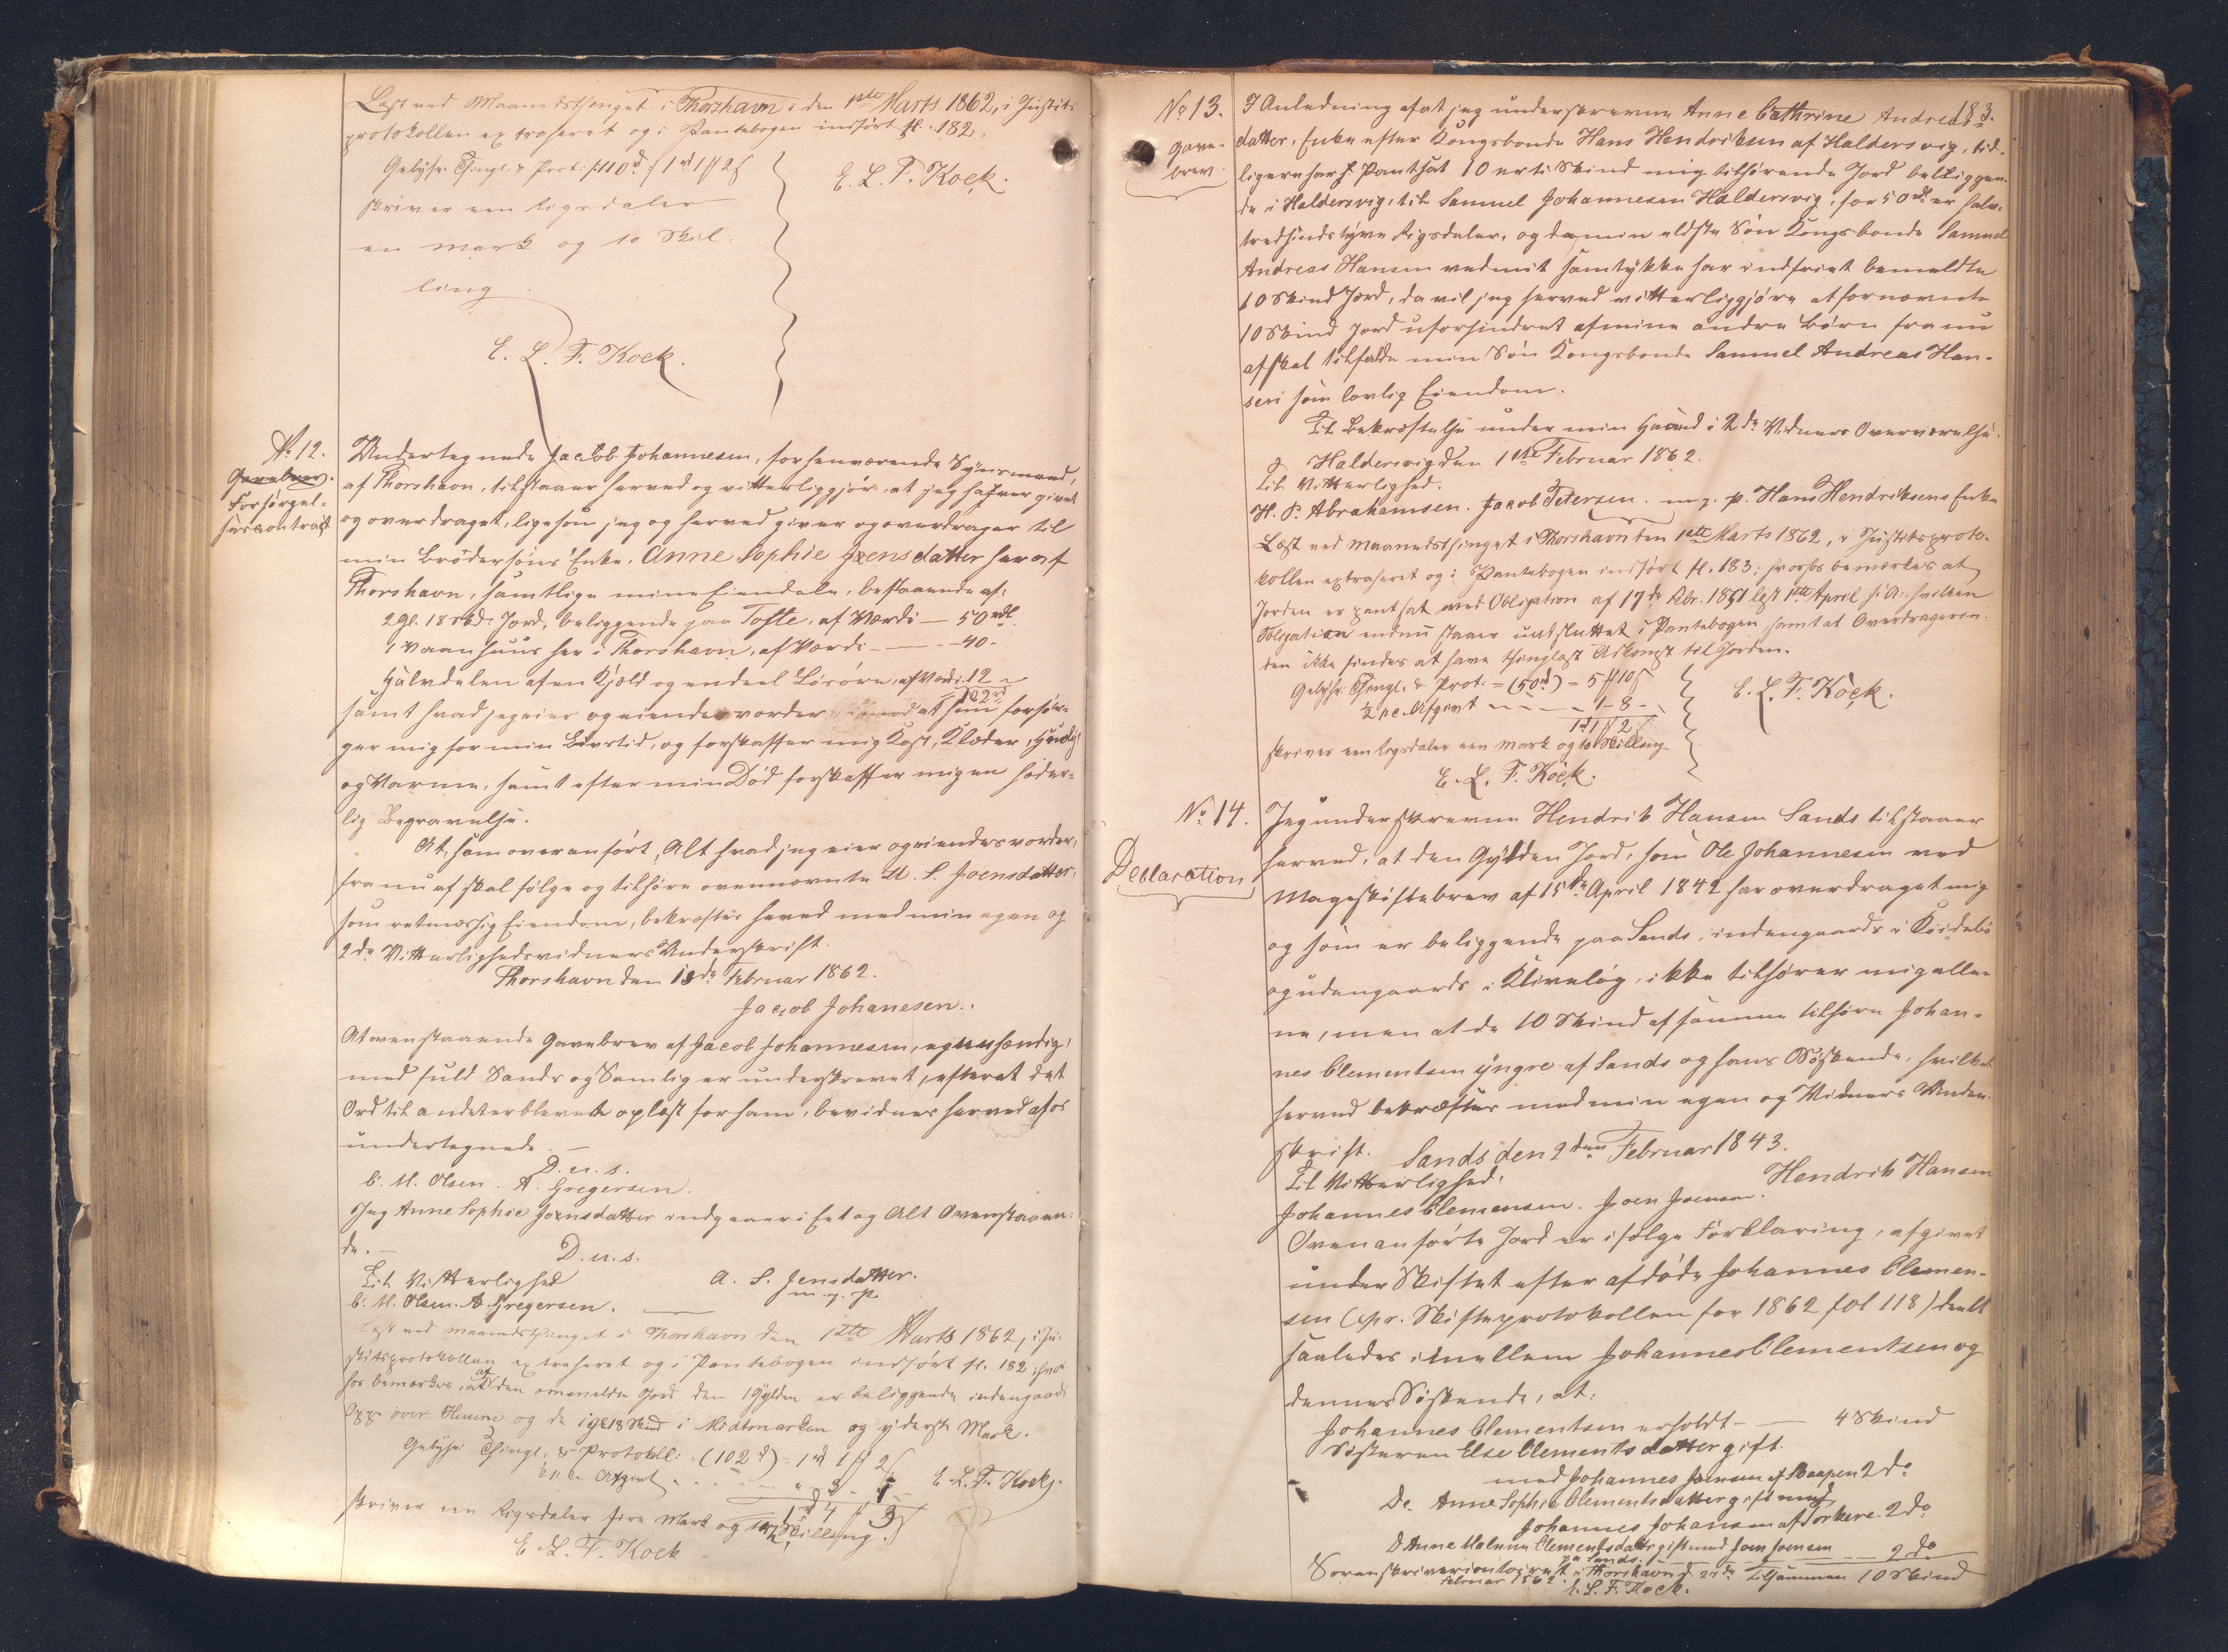 Læst ved Maanedsthinget i Thorshavn den 1ste Marts 1862, i Justits
protokollen extraheret og i Pantebogen indført fl. 182.
Gebyhr: Thingl. & Prot: 1 rd 1 ß 2 ſ
skriver een Rigsdaler
en mark og 10 Skil-
ling.
E. L. F. Kock.
E. L. F. Kock.
No 12.
Gavebrev.
Forsørgel-
sescontract
Undertegnede Jacob Johannesen, forhenværende Synsmand,
af Thorshavn, tilstaaer herved og vitterliggjør, at jeg hafver givet
og overdraget, ligesom jeg og herved giver og overdrager til
min Brødersøns Enke, Anne Sophie Joensdatter her af
Thorshavn, samtlige mine Eiendele, bestaaende af:
2 Gl. 18 Skd. Jord, beliggende paa Tofte, af Værdi — 50 rdl.
1 Vaanhuus her i Thorshavn, af Værdi — 40 -
Halvdelen af en Kjæld og endeel Løsøre, af Værdi 12
102 rd
samt hvad jeg eier og eiendes vorder imod at hun forsør-
ger mig for min Livstid, og forskaffer mig Kost, Klæder, Huusly
og Varme, samt efter min Død forskaffer mig en hæder-
lig Begravelse.
At, som ovenanført, Alt hvad jeg eier og eiendes vorder,
fra nu af skal følge og tilhøre ovennævnte A. S. Joensdatter,
som retmæssig Eiendom, bekræftes herved med min egen og
2de Vitterlighedsvidners Underskrift.
Thorshavn den 13de Februar 1862.
Jacob Johanesen.
At ovenstaaende Gavebrev af Jacob Johannesen, egenhændig,
med fuld Sands og Samling er underskrevet, efterat det
Ord til andet er blevet oplæst for ham, bevidnes herved af os
undertegnede. —
D. u. s.
C. M. Olsen. A. Gregersen.
Jeg Anne Sophie Joensdatter indgaaer i Eet og Alt Ovenstaaen-
de. —
D. u. s.
Til Vitterlighed
A. S. Jensdatter.
m. g. P.
C. M. Olsen. A. Gregersen.
Læst ved Maanedsthinget i Thorshavn den 1ste Marts 1862, i Ju-
stitsprotokollen extraheret og i Pantebogen indført fl. 182, hvor-
hos bemærkes, at af den ommeldte Jord den 1 Gylden er beliggende indengaards
over og de 1 Gl 18 Skind i Midtmarken og yderste Mark.
Gebyhr Thingl. & Protokoll: (102 d) = 1 rd 1 ß 2 ſ
½ pc. Afgivt
E. L. F. Kock.
skriver een Rigsdaler fire Mark og Skilling.
E. L. F. Kock
183.
No 13.
Gave-
brev.
I Anledning af at jeg underskrevne Anne Cathrine Andreas-
datter, Enke efter Kongsbonde Hans Hendriksen af Haldersvig, tid-
ligere har pantsat 10 er ti Skind mig tilhørende Jord beliggen-
de i Haldersvig, til Samuel Johannesen Haldersvig, for 50 rdl er halv-
tredsindstyve Rigsdaler, og da min ældste Søn Kongsbonde Samuel
Andreas Hansen ved mit Samtykke har indfriet bemeldte
10 Skind Jord, da vil jeg herved vitterliggjøre at fornævnte
10 Skind Jord uforhindret af mine andre Børn fra nu
af skal tilfalde min Søn Kongsbonde Samuel Andreas Han-
sen som lovlig Eiendom.
Til Bekræftelse under min Haand i 2de Vidners Overværelse.
Haldersvig den 1ste Februar 1862.
Til Vitterlighed.
H. P. Abrahamsen. Jacob Petersen. m. g. p. Hans Hendriksens Enke
Læst ved Maanedsthinget i Thorshavn den 1ste Marts 1862, i Justitsproto-
kollen extraheret og i Pantebogen indført fl. 183; hvorhos bemærkes at
Jorden er pantsat ved Obligation af 17de Febr. 1851 læst 1ste April s. A. hvilken
Obligation endnu staaer uudslettet i Pantebogen samt at Overdragerin-
den ikke findes at have thinglæst Adkomst til Jorden.
Gebyhr: Thingl. & Prot: = (50 rd) = 5 ß 10 ſ
½ pc. Afgivt — — — 1 - 8 -
1 rd 1 ß 2 ſ
skriver een Rigsdaler een Mark og to Skilling.
E. L. F. Kock.
E. L. F. Kock.
No 14.
Declaration
Jeg underskrevne Hendrik Hansen Sands tilstaaer
herved, at den Gylden Jord, som Ole Johannesen ved
Mageskiftebrev af 15de April 1842 har overdraget mig
og som er beliggende paa Sands, indengaards i
og udengaards i ikke tilhører mig alle-
ne, men at de 10 Skind af samme tilhøre Johan-
nes Clementsen yngre af Sands og hans Søskende, hvilket
herved bekræftes med min egen og Vidners Under-
skrift. Sands den 2den Februar 1843.
Til Vitterlighed:
Hendrik Hansen
Johannes Clemensen. Joen Joensen.
Ovenanførte Jord er ifølge Forklaring, afgivet
under Skiftet efter afdøde Johannes Clemen-
sen (cfr. Skifteprotokollen for 1862 fol 118) deelt
saaledes imellem Johannes Clementsen og
dennes Søskende, at:
Johannes Clementsen erholdt — — 4 Skind
Søsteren Else Clementsdatter gift
med Johannes Joensen af Skaapen 2 do
Do Anne Sophie Clementsdatter gift med
Johannes Johansen af 2 do
D Anne Malene Clementsdatter gift med Joen Joensen
paa Sands — — 2 do
Tilsammen 10 Skind
Sorenskrivercontoiret i Thorshavn d.
Februar 1862.
E. L. F. Kock.